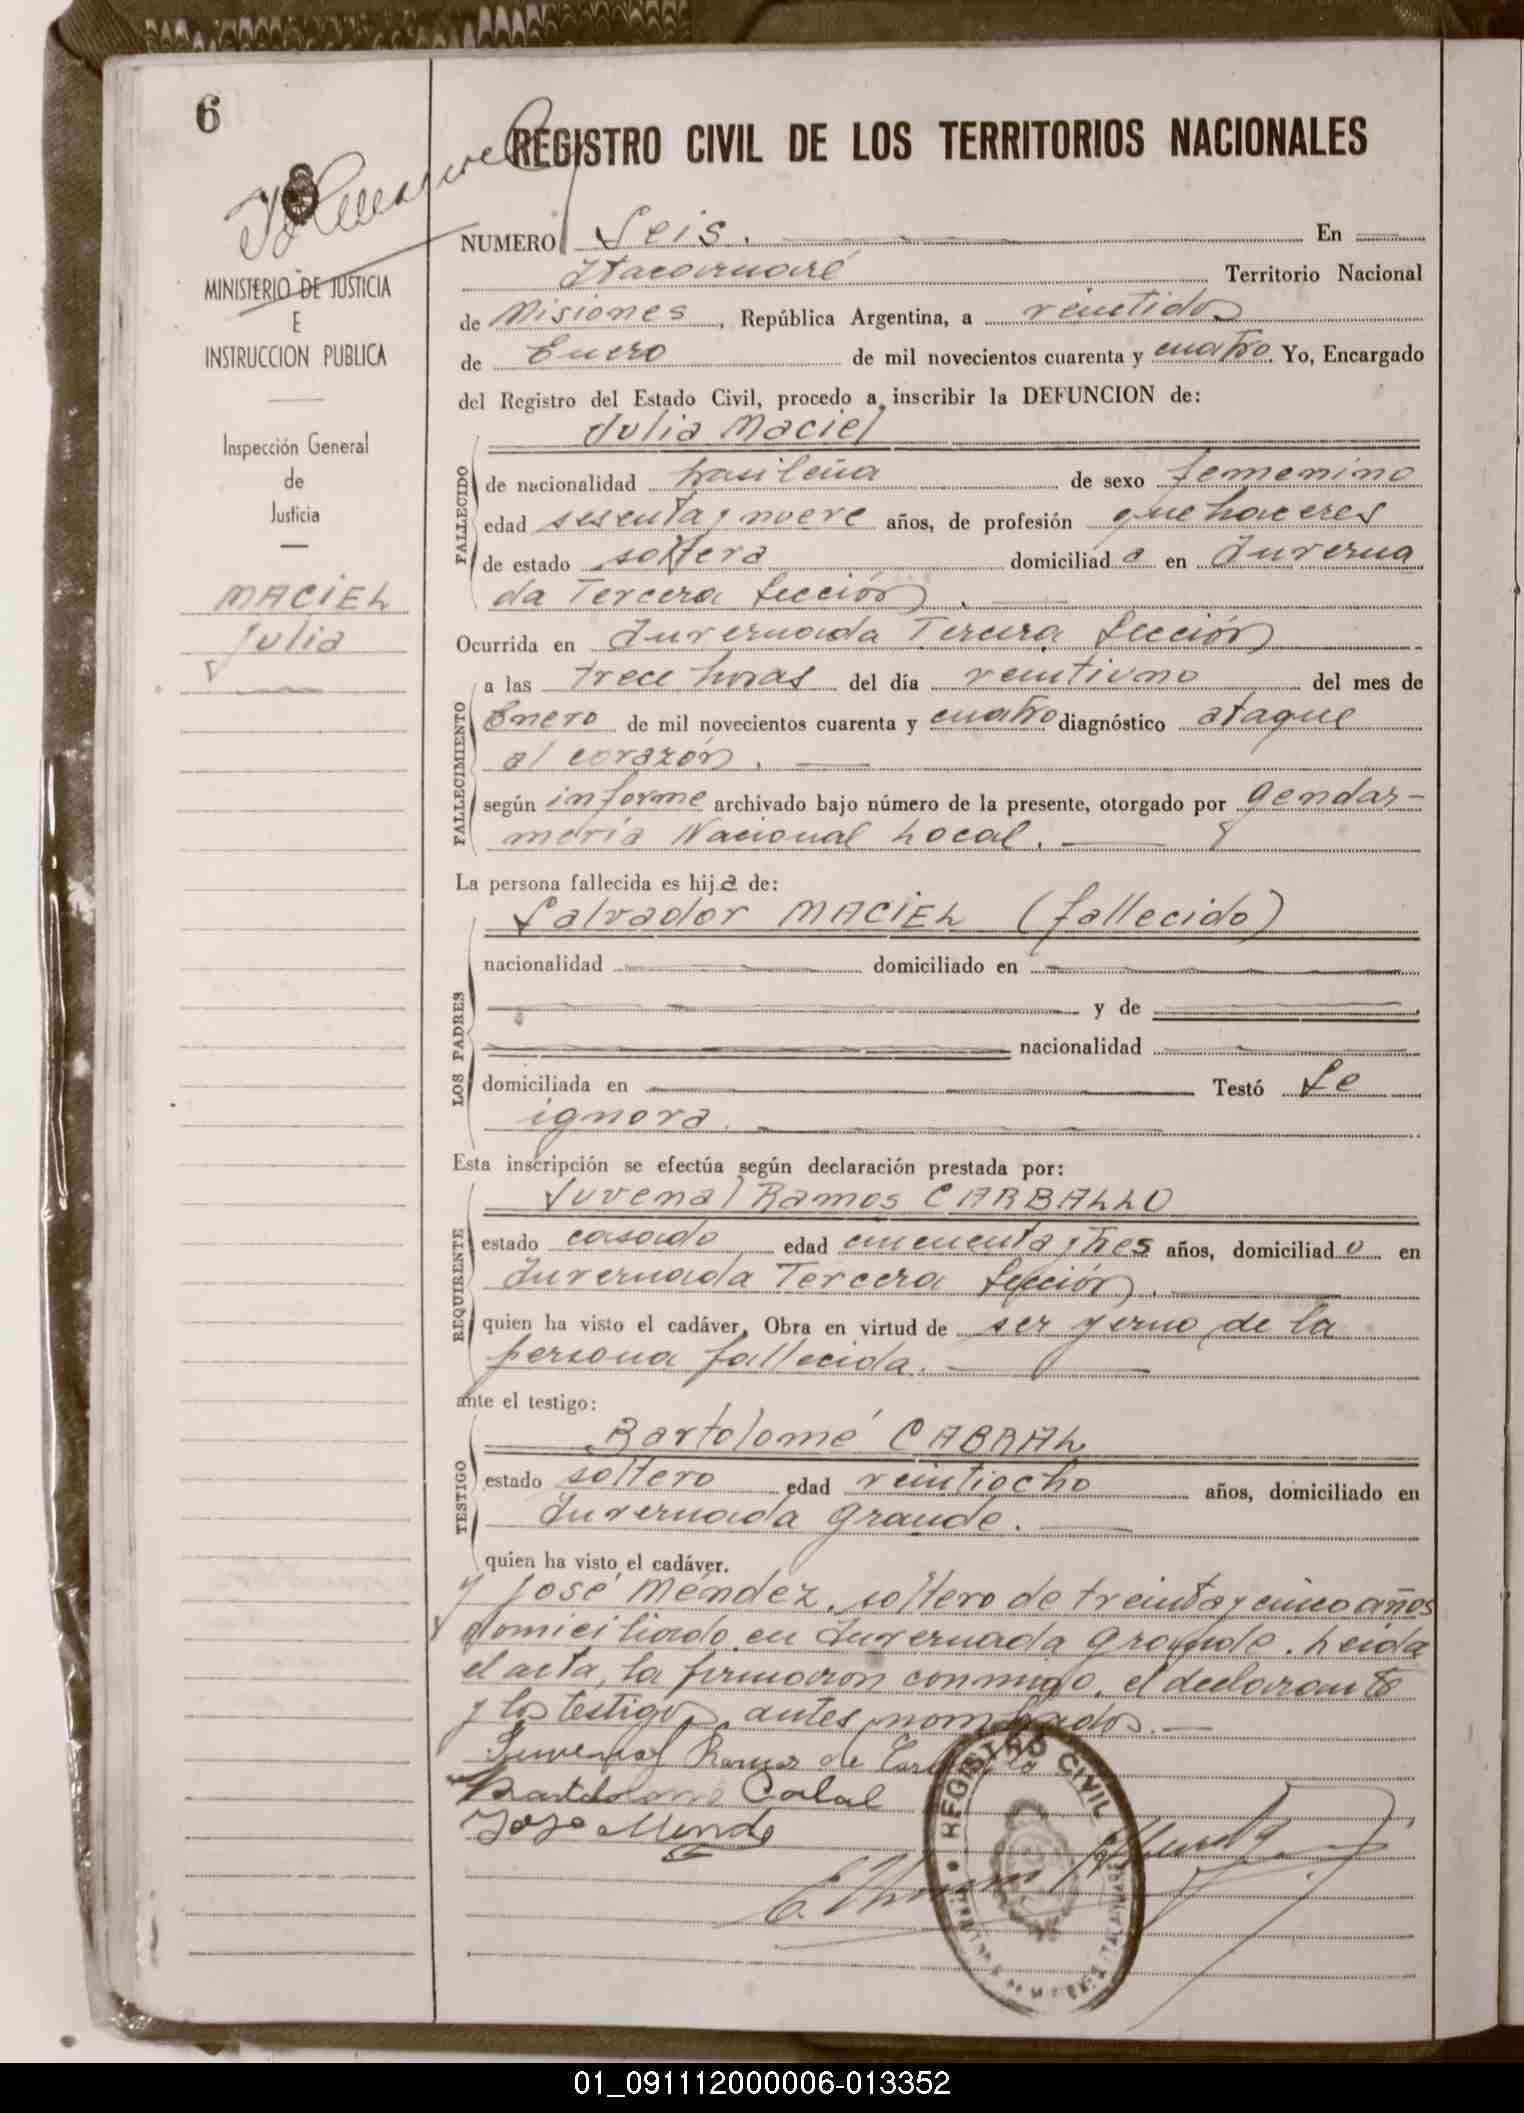 6
REGISTRO CIVIL DE LOS TERRITORIOS NACIONALES
MINISTERIO DE JUSTICIA
E
INSTRUCCION PUBLICA
Inspección General
de
Justicia
MACIEL
Julia
NUMERO Seis. En
Itacaruaré Territorio Nacional
de Misiones, República Argentina, a veintidos
de Enero de mil novecientos cuarenta y cuatro. Yo, Encargado
del Registro del Estado Civil, procedo a inscribir la DEFUNCION de:
Julia Maciel
FALLECIDO
de nacionalidad brasileña de sexo femenino
edad sesenta y nueve años, de profesión quehaceres
de estado soltera domiciliada en Inverna
da Tercera Sección.
Ocurrida en Invernada Tercera Sección
FALLECIMIENTO
a las trece horas del día veintiuno del mes de
Enero de mil novecientos cuarenta y cuatro diagnóstico ataque
al corazón.
según informe archivado bajo número de la presente, otorgado por Gendar-
mería Nacional Local.
La persona fallecida es hija de:
Salvador MACIEL (fallecido)
LOS PADRES
nacionalidad domiciliado en
y de
nacionalidad
domiciliada en Testó Se
ignora.
Esta inscripción se efectúa según declaración prestada por:
Juvenal Ramos CARBALLO
REQUIRENTE
estado casado edad cincuenta y tres años, domiciliado en
Invernada Tercera Sección.
quien ha visto el cadáver, Obra en virtud de ser yerno de la
persona fallecida.
ante el testigo:
Bartolomé CABRAL
TESTIGO
estado soltero edad veintiocho años, domiciliado en
Invernada Grande.
quien ha visto el cadáver.
y José Méndez, soltero de treinta y cinco años
domiciliado en Invernada Grande. Leida
el acta, la firmaron conmigo, el declarante
y los testigos antes nombrados.
Juvenal Ramos de
Bartolome Cabal
Jose Mende
REGISTRO CIVIL
01_091112000006-013352